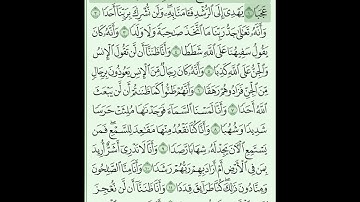 عَجَبًا ۝١ يَهْدِىٓ إِلَى ٱلرُّشْدِ فَـَٔامَنَّا بِهِۦ ۖ وَلَن نُّشْرِكَ بِرَبِّنَآ أَحَدًا ۝٢
وَأَنَّهُۥ تَعَـٰلَىٰ جَدُّ رَبِّنَا مَا ٱتَّخَذَ صَـٰحِبَةً وَلَا وَلَدًا ۝٣ وَأَنَّهُۥ كَانَ
يَقُولُ سَفِيهُنَا عَلَى ٱللَّهِ شَطَطًا ۝٤ وَأَنَّا ظَنَنَّآ أَن لَّن تَقُولَ ٱلْإِنسُ
وَٱلْجِنُّ عَلَى ٱللَّهِ كَذِبًا ۝٥ وَأَنَّهُۥ كَانَ رِجَالٌ مِّنَ ٱلْإِنسِ يَعُوذُونَ بِرِجَالٍ
مِّنَ ٱلْجِنِّ فَزَادُوهُمْ رَهَقًا ۝٦ وَأَنَّهُمْ ظَنُّوا۟ كَمَا ظَنَنتُمْ أَن لَّن يَبْعَثَ
ٱللَّهُ أَحَدًا ۝٧ وَأَنَّا لَمَسْنَا ٱلسَّمَآءَ فَوَجَدْنَـٰهَا مُلِئَتْ حَرَسًا
شَدِيدًا وَشُهُبًا ۝٨ وَأَنَّا كُنَّا نَقْعُدُ مِنْهَا مَقَـٰعِدَ لِلسَّمْعِ ۖ فَمَن
يَسْتَمِعِ ٱلْـَٔانَ يَجِدْ لَهُۥ شِهَابًا رَّصَدًا ۝٩ وَأَنَّا لَا نَدْرِىٓ أَشَرٌّ أُرِيدَ
بِمَن فِى ٱلْأَرْضِ أَمْ أَرَادَ بِهِمْ رَبُّهُمْ رَشَدًا ۝١٠ وَأَنَّا مِنَّا ٱلصَّـٰلِحُونَ
وَمِنَّا دُونَ ذَٰلِكَ ۖ كُنَّا طَرَآئِقَ قِدَدًا ۝١١ وَأَنَّا ظَنَنَّآ أَن لَّن نُّعْجِزَ